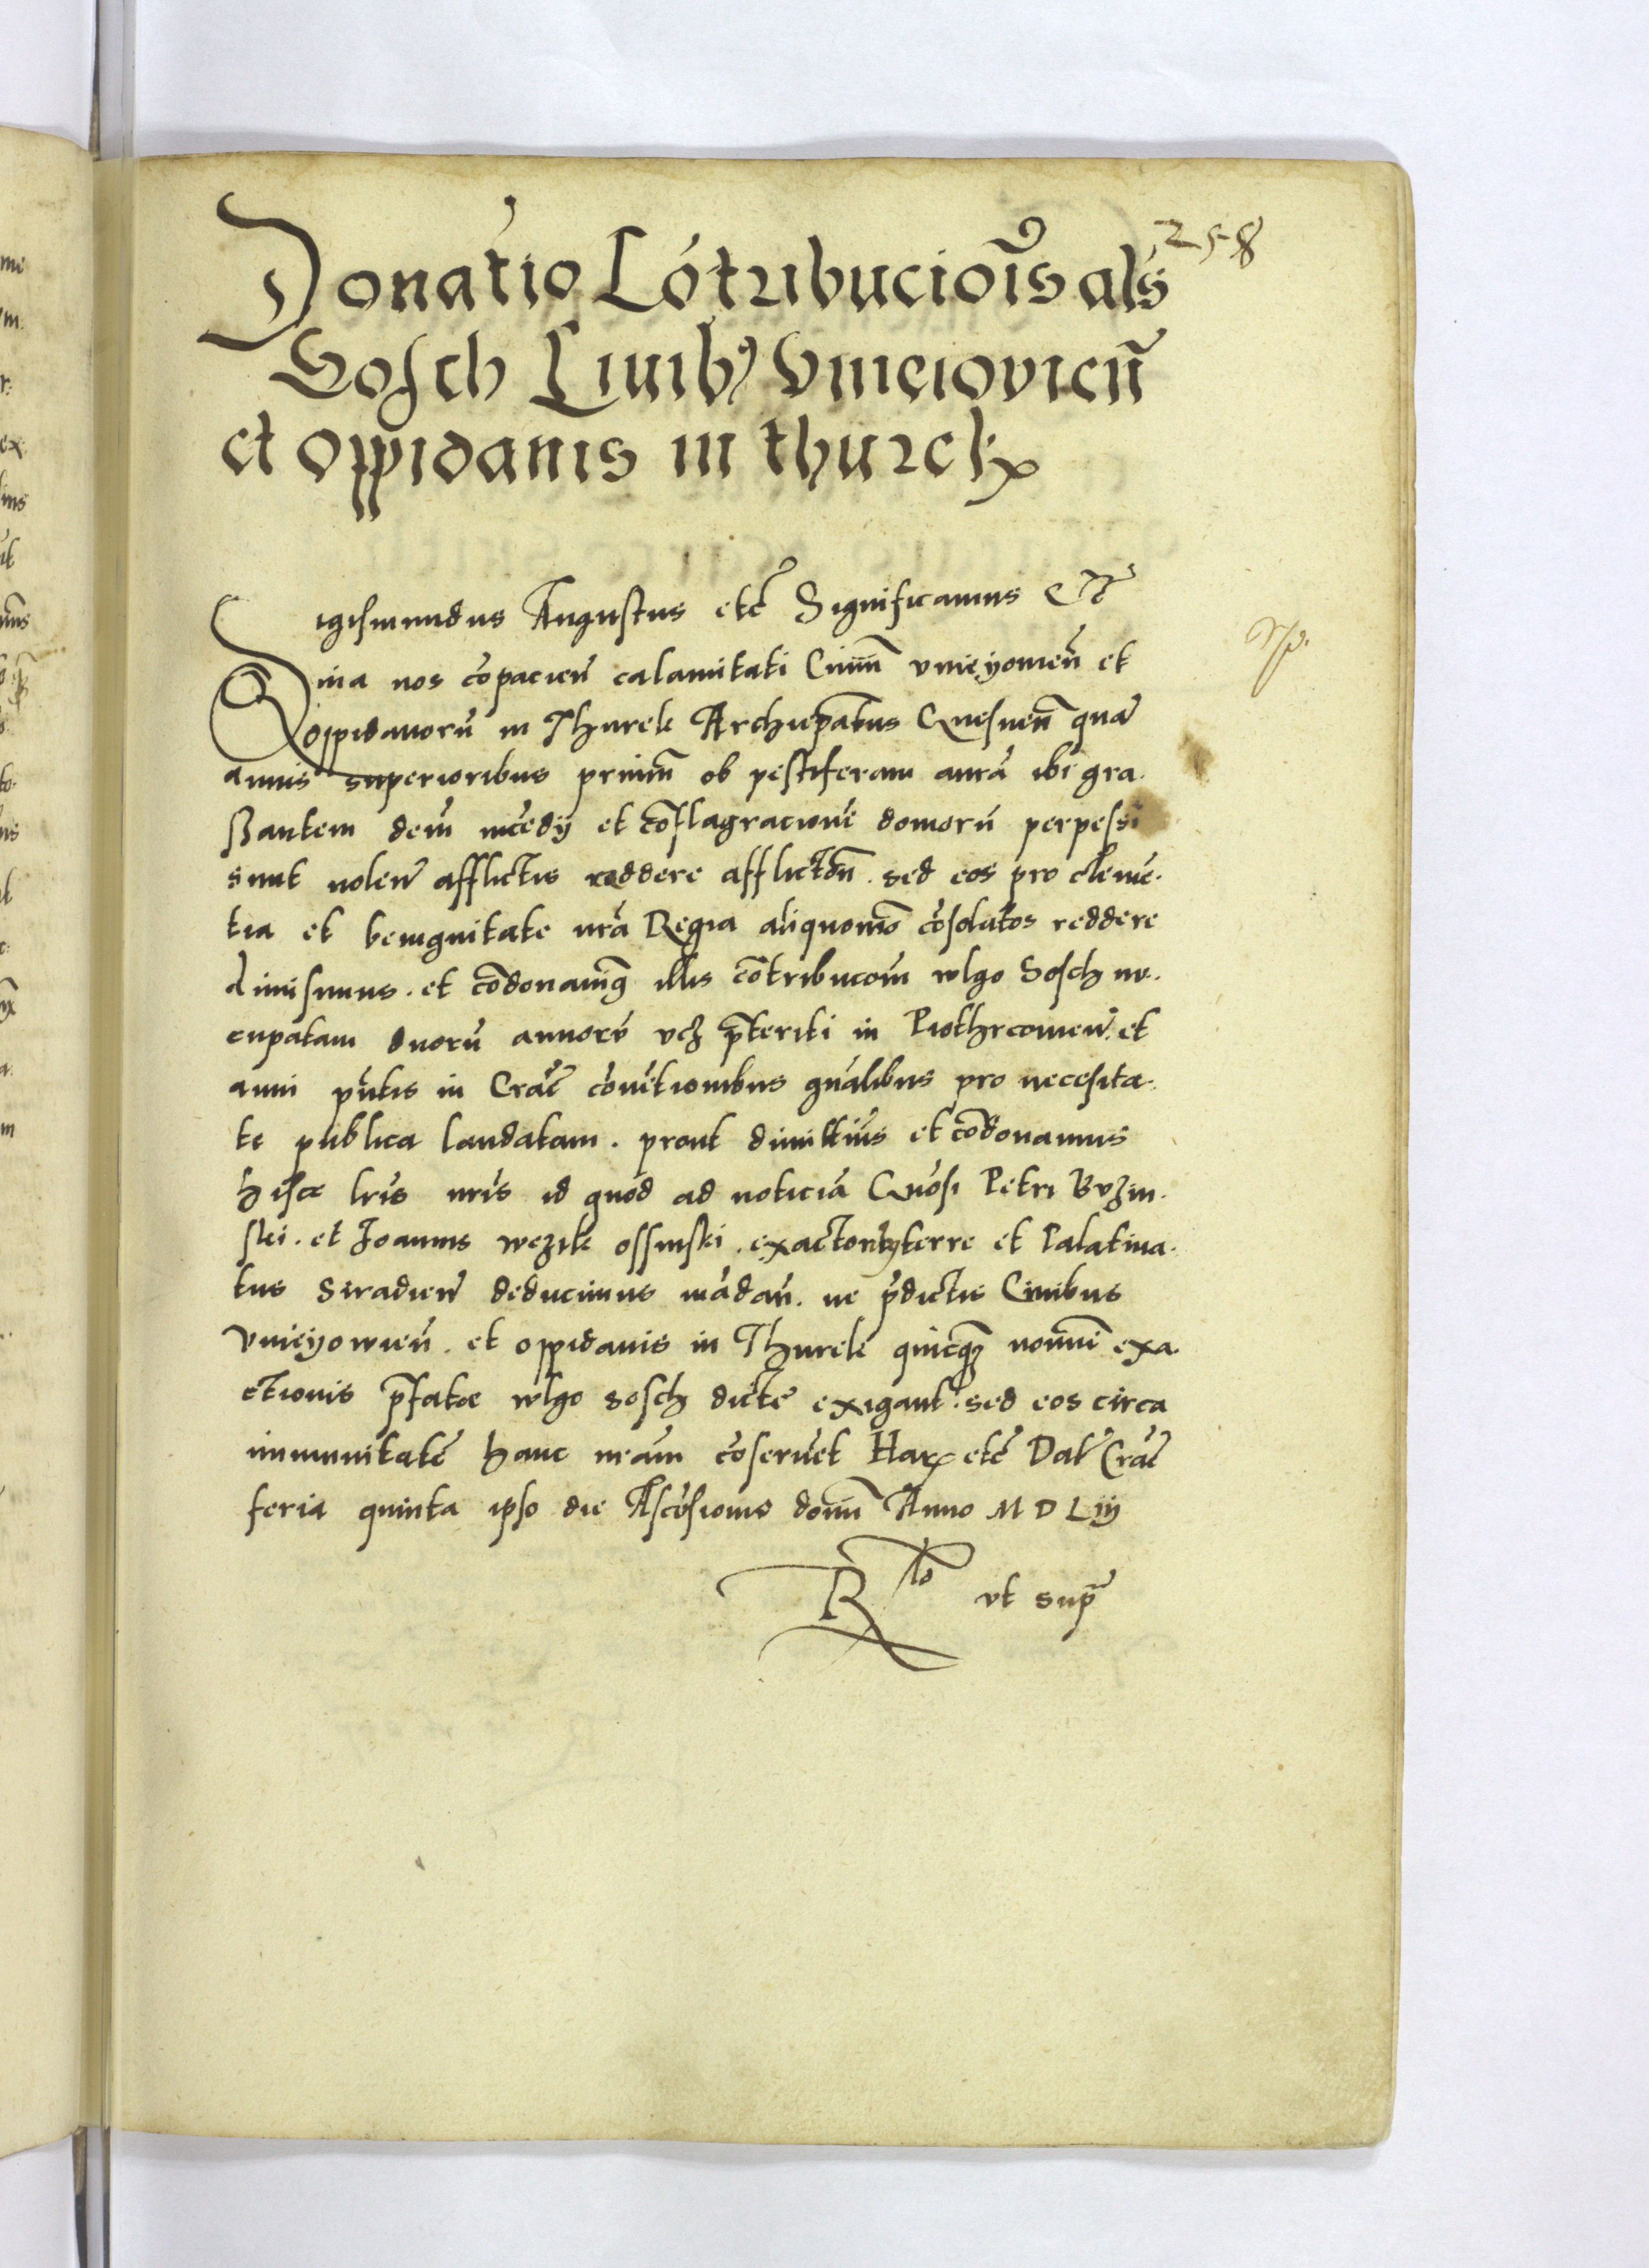 258
Donatio Cōtribucioīs als
Sosch Ciuib9 Vnieiovicn̄
et oppidanis in thurek
Sigismundus Augustus etc̄ Significamus Etc̄
Quia nos cōpacien̄ calamitati Ciuiū vnieyowien̄ et
oppidanorū in Thurek Archiep̄atus Gnesnen̄ quā
annis superioribus primū ob pestiferam aurā ibi gra.
ssantem dein̄ incēdij et cōflagracionē domorū perpessi
sunt nolen̄ afflictis reddere afflictōn̄. sed eos pro clemē.
tia et benignitate nrā Regia aliquomō cōsolatos reddere
dimisimus. et cōdonauimꝰ illis cōtribucōm̄ wlgo Sosch nū.
cupatam duorū annorū vcꝫ p̄teriti in Piothrcowien̄. et
anni pn̄tis in Crac̄ cōuētionibus gn̄alibus pro necesita.
te publica laudatam. prout dimittim̄s et cōdonamus
hisce lr̄is nr̄is id quod ad noticiā Gn̄osi Petri Buzin.
ski. et Joannis wezik ossinski. exactorū terre et Palatina.
tus Siradien̄ deducimus mādan̄. ne p̄dictis Ciuibus
Vnieyowien̄. et oppidanis in Thurek quicqꝫ nomīe exa
ctionis p̄fatae wlgo sosch dicte exigant. sed eos circa
immunitatē hanc nr̄am cōseruēt Harꝫ etc̄ Dat̄ Crac̄
feria quinta ipso die Ascēsionis domī Anno M D Liij
Rto vt supr̄